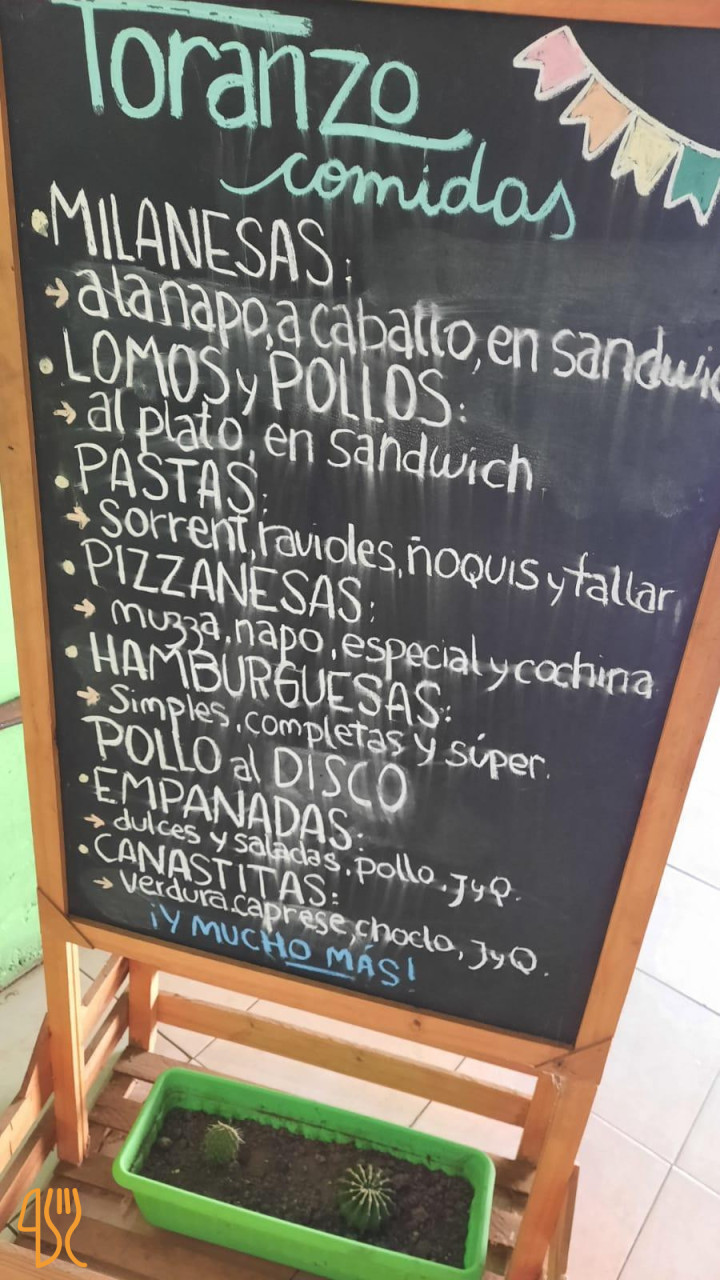 Toranzo
comidas
• MILANESAS:
→ a la napo, a caballo, en sandwic
• LOMOS y POLLOS:
→ al plato, en sandwich
• PASTAS:
→ sorrent, ravioles, ñoquis y tallar
• PIZZANESAS:
→ muzza, napo, especial y cochina
• HAMBURGUESAS:
→ Simples, completas y súper.
POLLO al DISCO
• EMPANADAS:
→ dulces y saladas, pollo, JyQ.
• CANASTITAS:
→ Verdura, caprese, choclo, JyQ.
¡Y MUCHO MÁS!